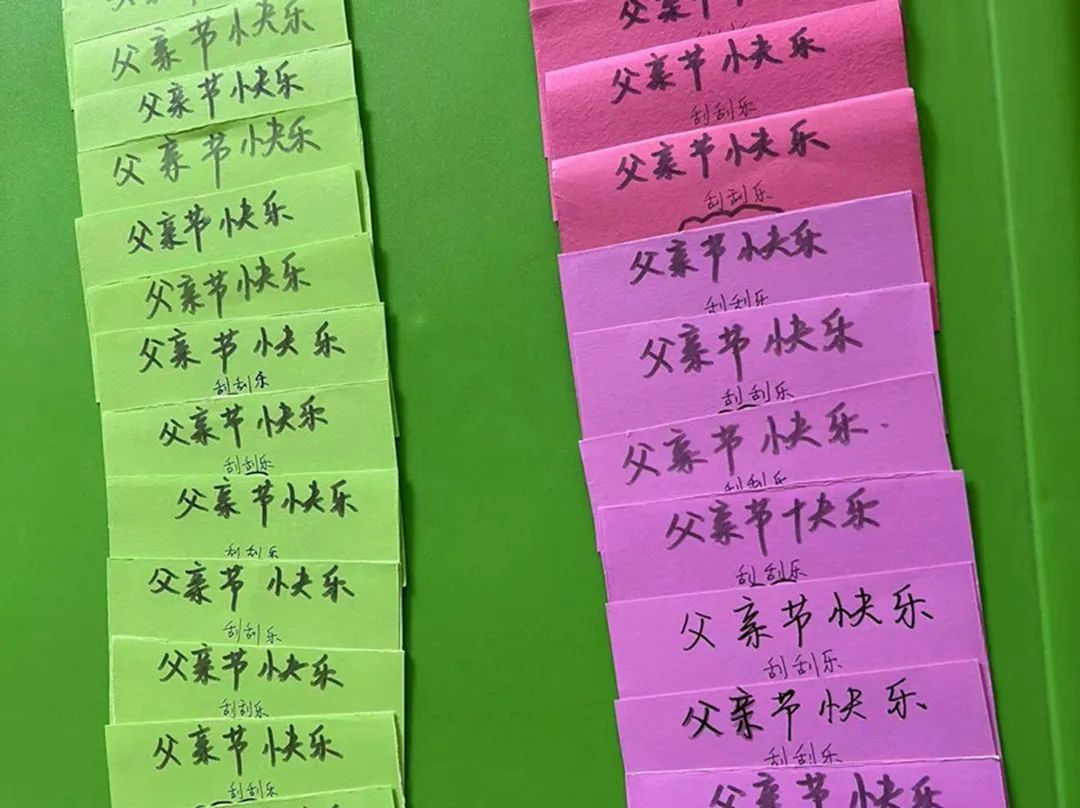 父亲节快乐
父亲节快乐
父亲节快乐
父亲节快乐
父亲节快乐
父亲节快乐
刮刮乐
父亲节快乐
刮刮乐
父亲节快乐
刮刮乐
父亲节快乐
刮刮乐
父亲节快乐
刮刮乐
父亲节快乐
刮刮乐
父亲节
父亲节快乐
刮刮乐
父亲节快乐
刮刮乐
父亲节快乐
刮刮乐
父亲节快乐
刮刮乐
父亲节快乐
刮刮乐
父亲节快乐
刮刮乐
父亲节快乐
刮刮乐
父亲节快乐
刮刮乐
父亲节快乐